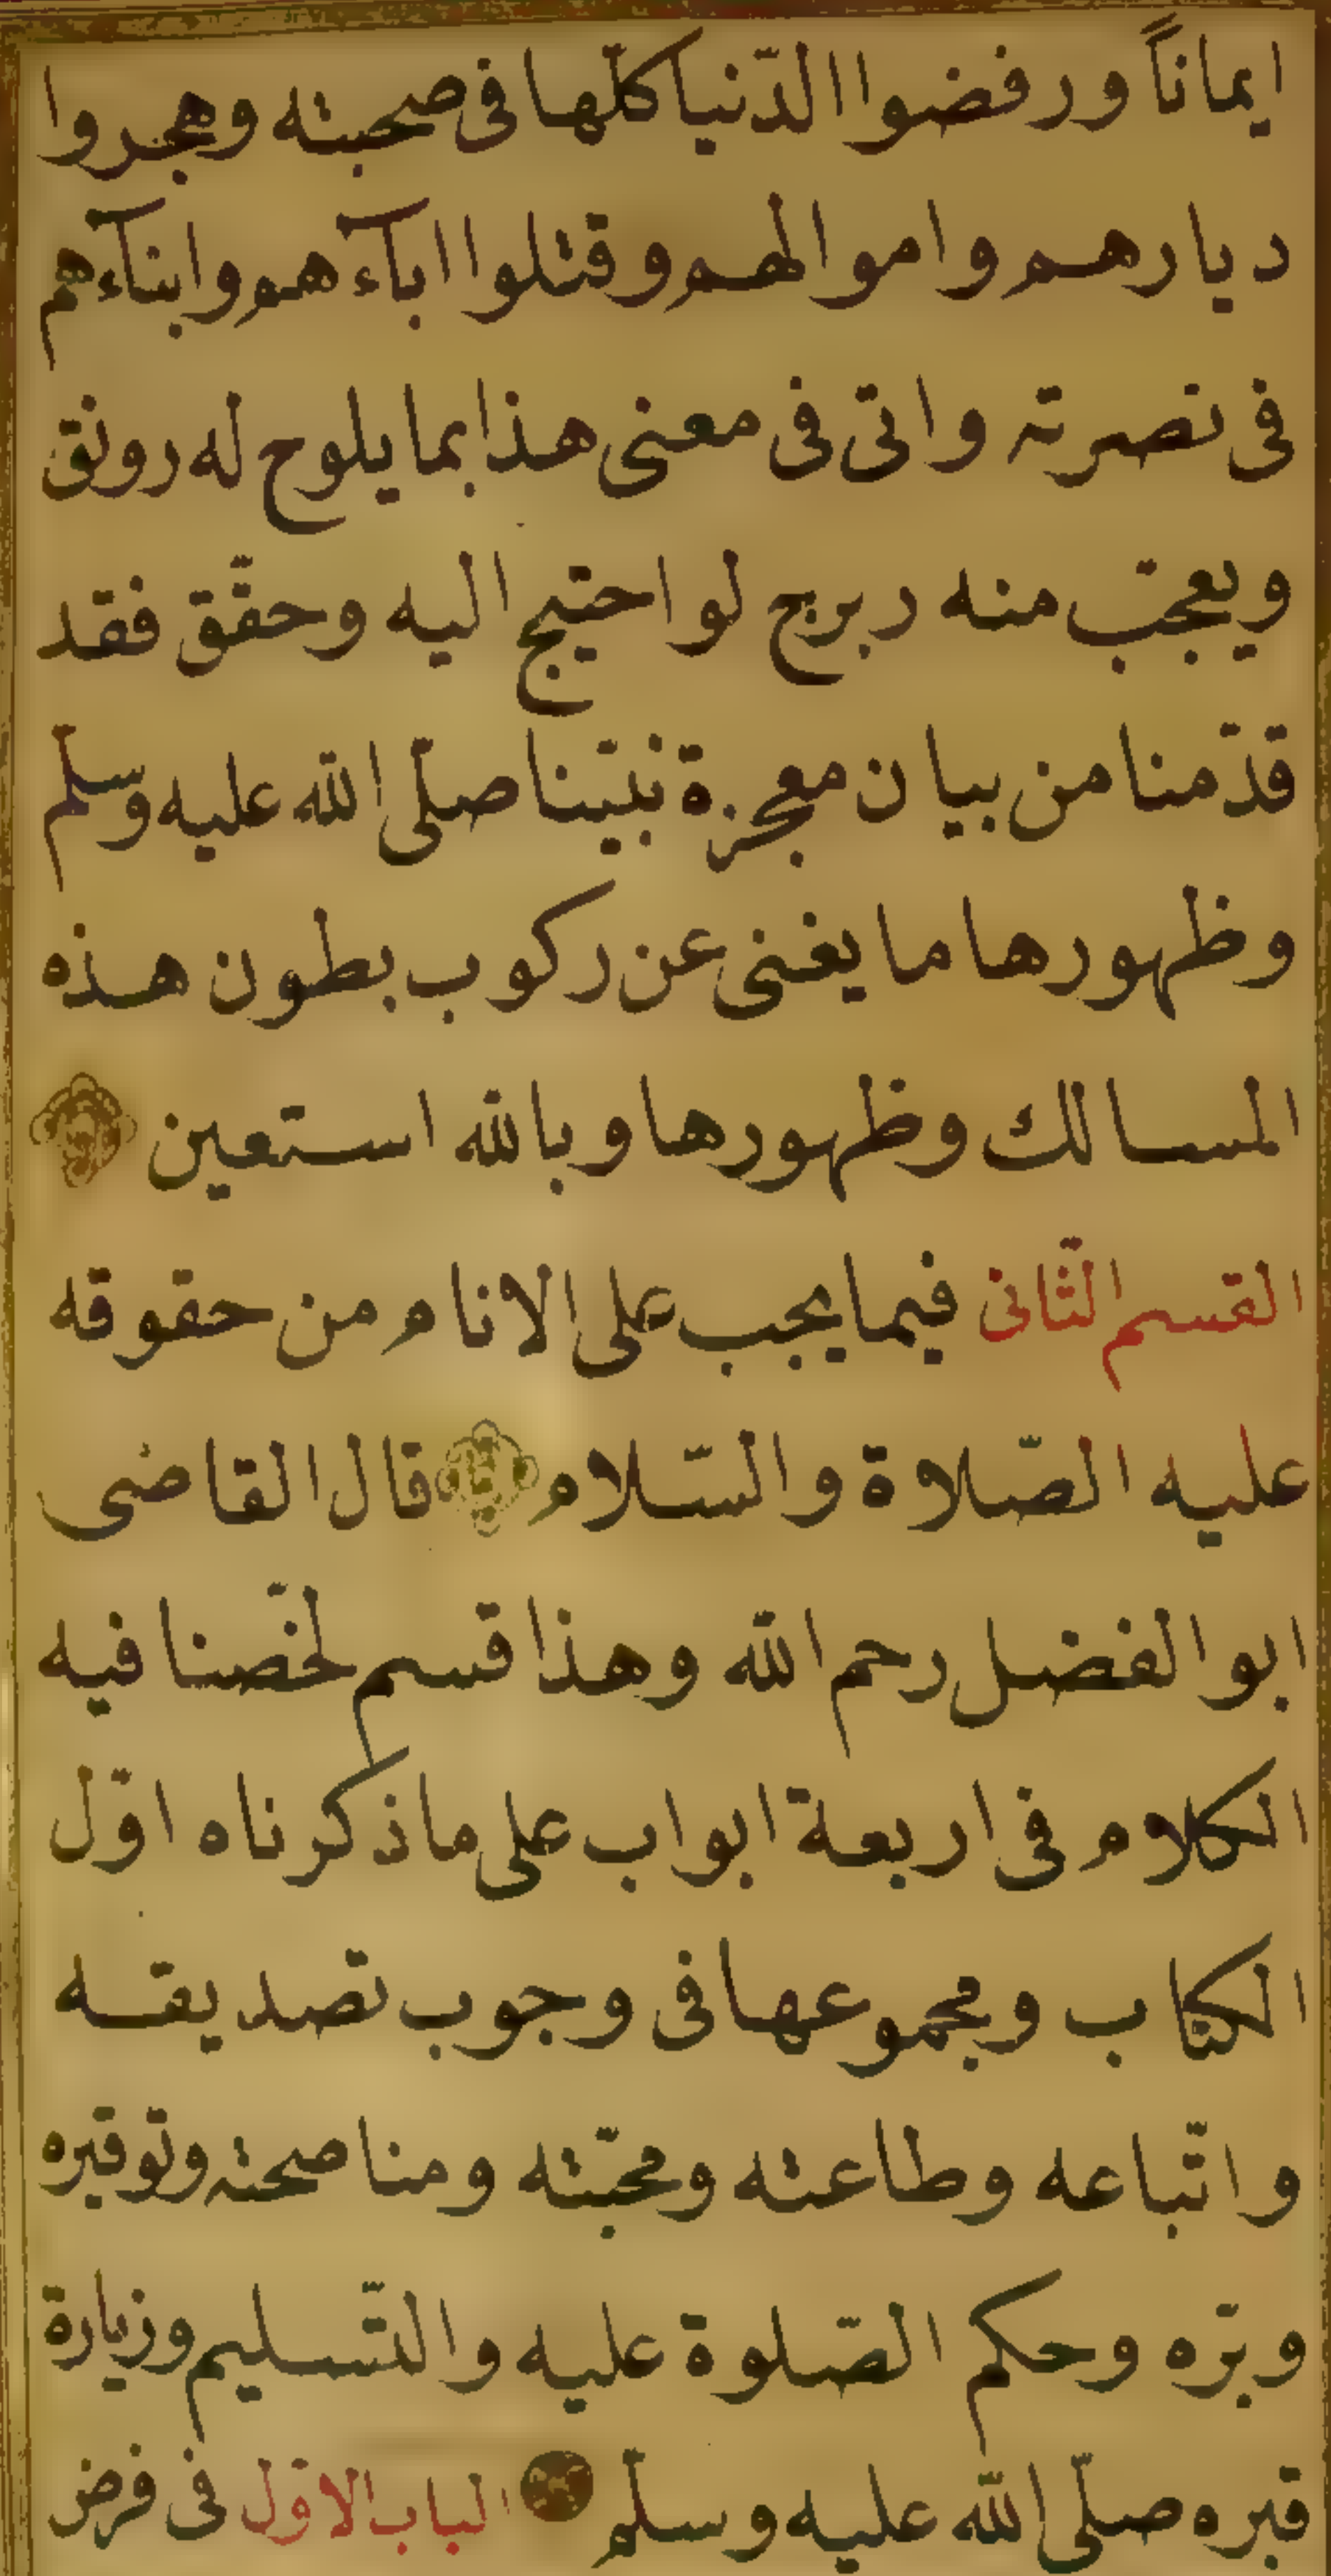 ايماناً ورفضوا الدّنيا كلّها فى صحبته وهجروا
ديارهم واموالهم وقتلوا اباۤءهم وابناۤءهم
فى نصرته واتى فى معنى هذا بما يلوح له رونق
ويعجب منه ربرج لو احتيج اليه وحقّق فقد
قدّمنا من بيان معجزة نبيّنا صلّى الله عليه وسلّم
وظهورها ما يغنى عن ركوب بطون هذه
المسالك وظهورها وبالله استعين
القسم الثّانى فيما يجب على الانام من حقوقه
عليه الصّلاة والسّلام قال القاضى
ابو الفضل رحم الله وهذا قسم لخّصنا فيه
الكلام فى اربعة ابواب على ما ذكرناه اوّل
الكتاب ومجموعها فى وجوب تصديقه
واتّباعه وطاعته ومحبّته ومناصحته وتوقيره
وبرّه وحكم الصّلوة عليه والتّسليم وزيارة
قبره صلّى الله عليه وسلّم الباب الاوّل فى فرض